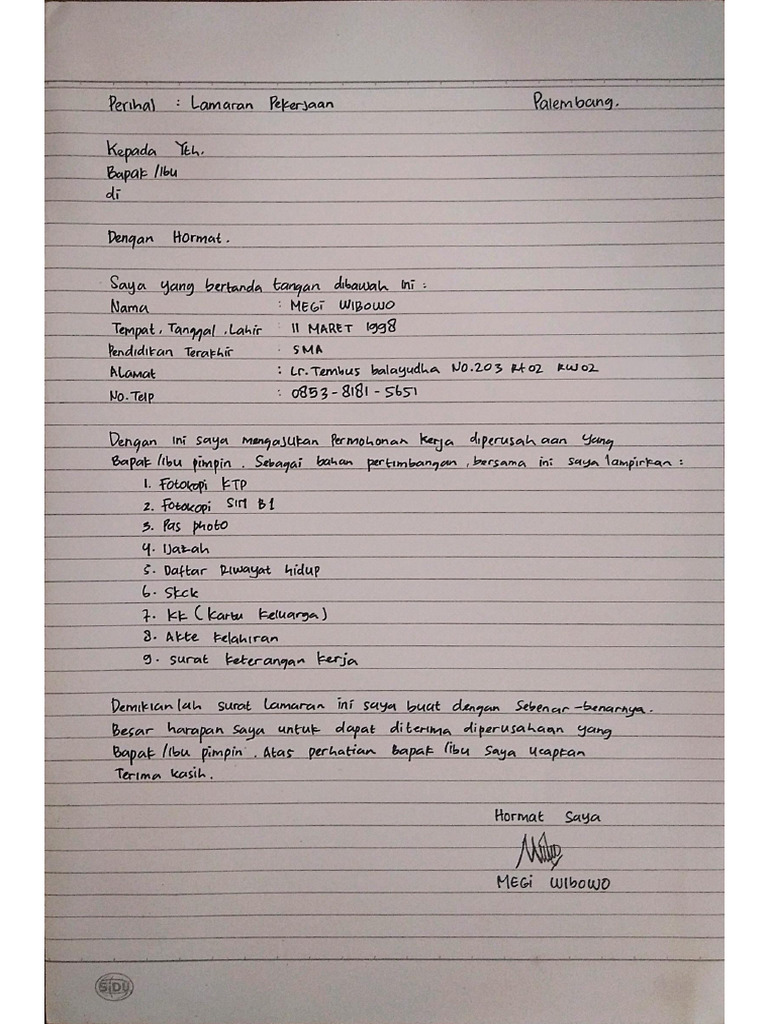 Perihal : Lamaran Pekerjaan Palembang.
Kepada Yth.
Bapak/Ibu
di
Dengan Hormat.
Saya yang bertanda tangan dibawah ini :
Nama : MEGI WIBOWO
Tempat, Tanggal, Lahir : 11 MARET 1998
Pendidikan Terakhir : SMA
Alamat : Lr. Tembus balayudha NO.203 Rt 02 RW 02
No. Telp : 0853-8181-5651
Dengan ini saya mengajukan Permohonan kerja diperusahaan yang
Bapak/Ibu pimpin. Sebagai bahan pertimbangan, bersama ini saya lampirkan :
1. Fotokopi KTP
2. Fotokopi SIM B1
3. Pas photo
4. Ijazah
5. Daftar Riwayat hidup
6. Skck
7. KK (Kartu Keluarga)
8. Akte Kelahiran
9. surat keterangan kerja
Demikianlah surat lamaran ini saya buat dengan Sebenar-benarnya.
Besar harapan saya untuk dapat diterima diperusahaan yang
Bapak/Ibu pimpin. Atas perhatian Bapak/ibu saya ucapkan
Terima kasih.
Hormat Saya
MEGI WIBOWO
SiDU